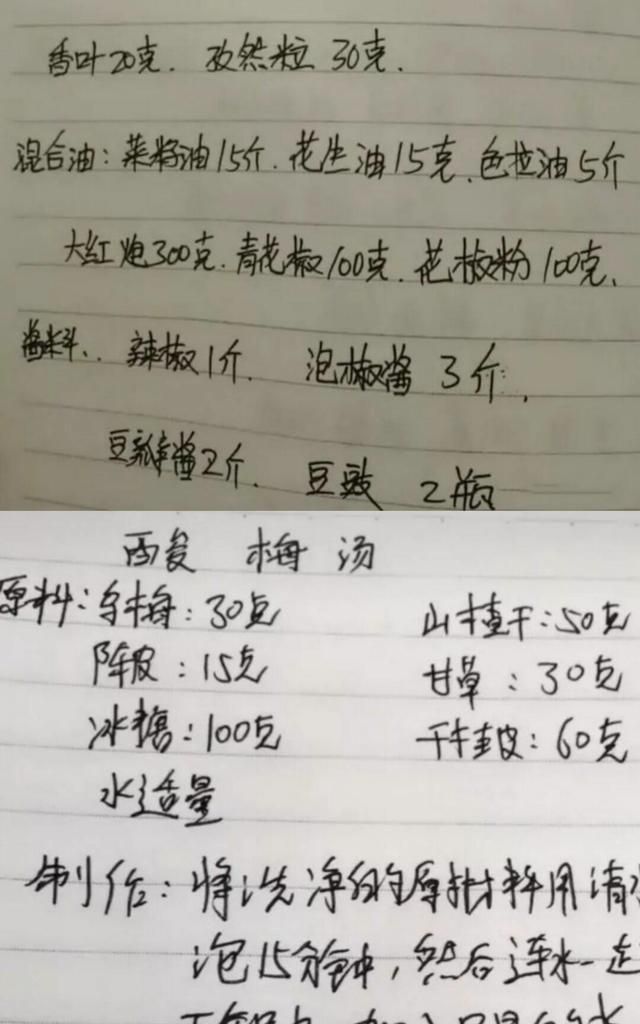 香叶20克. 孜然粒 30克.
混合油: 菜籽油15斤. 花生油15克. 色拉油5斤
大红炮300克. 青花椒100克. 花椒粉100克.
酱料.. 辣椒1斤. 泡椒酱 3斤.
豆瓣酱2斤. 豆豉 2瓶
酸梅汤
原料: 乌梅: 30克 山楂干: 50克
陈皮: 15克 甘草: 30克
冰糖: 100克
水适量
制作: 将洗净的原材料用清
泡15分钟, 然后连水一起